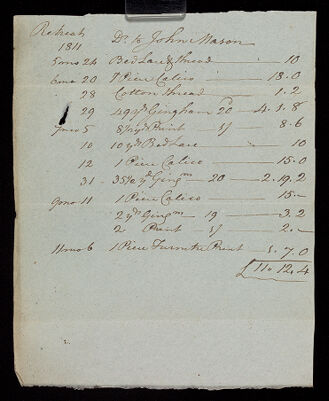 Retreat Dr. to John Mason
1811
5mo 24 Bed Lace & thread 10
6mo 20 1 Piece Calico 18.0
28 Cotton thread 1.2
29 49 yd Gingham 20 4.1.8
7mo 5 yd Print 8.6
10 10 yd Bed Lace 10
12 1 Piece Calico 15.0
31 35 yd Gingm 20 2.19.2
9mo 11 1 Piece Calico 15.
2 yd Gingm 19 3.2
2 Print 2.
11mo 6 1 Piece Furnitre Print 1.7.0
£11.12.4